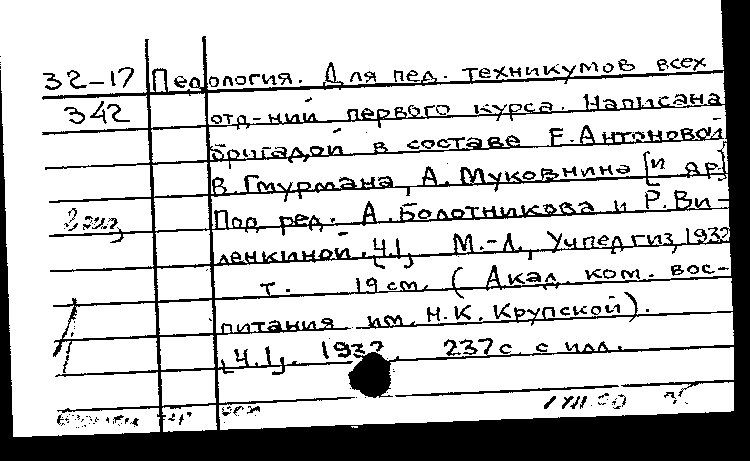 32-17 Педология. Для пед. техникумов всех
342 отд-ний первого курса. Написана
бригадой в составе Е. Антоновой
В. Гмурмана, А. Муковнина [и др]
2 экз Под ред. А. Болотникова и Р. Ви-
ленкиной. Ч.1, М.-Л., Учпедгиз, 1932
т. 19 см. (Акад. ком. вос-
питания им. Н.К. Крупской).
[Ч.1]. 1932. 237 с. с илл.